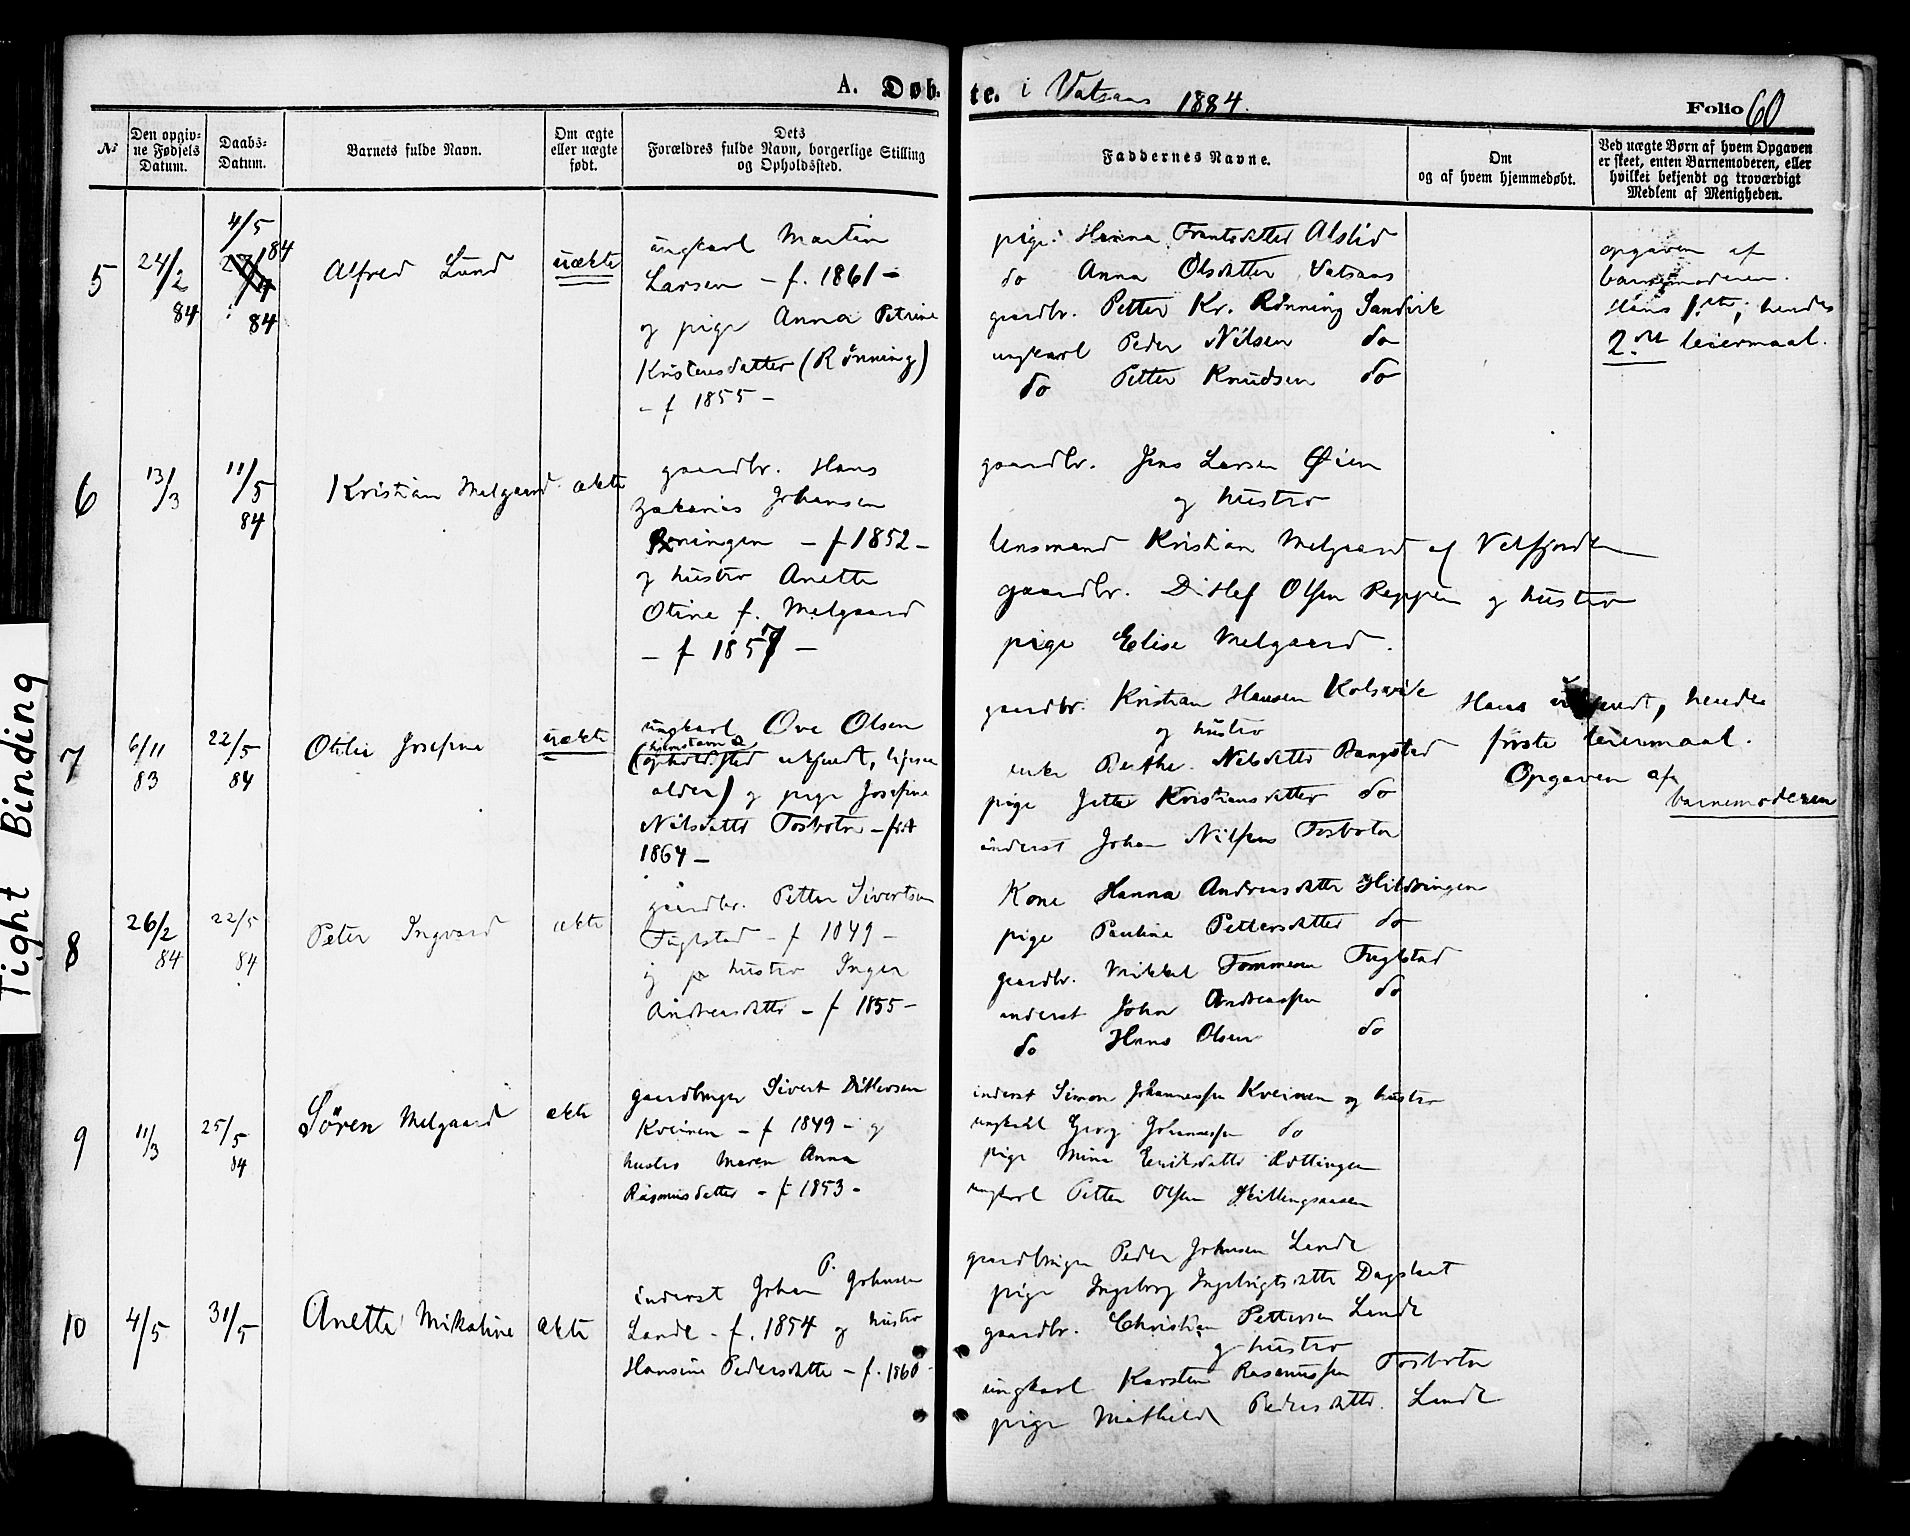 A. Døb-te. i Vatsaas 1884.
Folio 60
№
Den opgiv-
ne Fødsels
Datum.
Daabs-
Datum.
Barnets fulde Navn.
Om ægte
eller uægte
født.
Dets
Forældres fulde Navn, borgerlige Stilling
og Opholdssted.
Faddernes Navne.
Om
og af hvem hjemmedøbt.
Ved uægte Børn af hvem Opgaven
er skeet, enten Barnemoderen, eller
hvilket bekjendt og troværdigt
Medlem af Menigheden.
5
24/2
84
4/5
84
84
Alfred Lund
uækte
ungkarl Martin
Larsen - f. 1861 -
og pige Anna Petrine
Kristensdatter (Rønning)
- f 1855 -
pige: Hanna Frantsdatter Alslid
do Anna Olsdatter Vatsaas
gaardbr. Petter Kr. Rønning Sandvik
ungkarl Peder Nilsen do
do Petter Knudsen do
opgaven af
barnemoderen.
Hans 1.ste; hendes
2.det leiermaal.
6
13/3
11/5
84
Kristian Melgaard
ækte
gaardbr. Hans
Zakarias Johansen
- f 1852 -
og hustro Anette
Otine f. Melgaard
- f 1857 -
gaardbr. Jens Larsen Øien
og hustro
lensmand Kristian Melgaard af Velfjorden
gaardbr. Ditlef Olsen Reppen og hustro
pige Elise Melgaard.
7
6/11
83
22/5
84
Otilie Josefine
uækte
ungkarl Ove Olsen
(hjemstavn &
opholdssted ukjendt, ligesaa
alder) og pige Josefine
Nilsdatter Tosbotn - født
1864 -
gaardbr. Kristian Hansen Kolsvik
og hustro
enke Berthe Nilsdatter Bangstad
pige Jette Kristiansdatter do
inderst Johan Nilsen Tosbotn
Hans ukjendt, hendes
første leiermaal.
Opgaven af
barnemoderen
8
26/2
84
22/5
84
Peter Ingvard
ækte
gaardbr. Petter Sivertsen
Fuglstad - f 1849 -
og hustro Inger
Andreasdatter - f 1855 -
Kone Hanna Andreasdatter Hildringen
pige Pauline Pettersdatter do
gaardbr. Mikkel Tommesen Fuglstad
inderst John Andreassen do
do Hans Olsen do
9
11/3
25/5
84
Søren Melgaard
ækte
gaardbruger Sivert Ditlevsen
Kveinen - f 1849 - og
hustro Maren Anna
Rasmusdatter - f 1853 -
inderst Simon Johannessen Kveinen og hustro
ungkarl Georg Johannessen do
pige Mina Eriksdatter
ungkarl Petter Olsen
10
4/5
31/5
Anette Mikaline
ækte
inderst Johan P. Johnsen
Lande - f. 1854 og hustro
Hansine Pedersdatter - f. 1860 -
gaardbruger Peder Johnsen Lande
pige Ingeborg Ingebrigtsdatter Dagslaat
gaardbr. Christian Pettersen Lande
og hustro
ungkarl Karsten Rasmussen Tosbotn
pige Mathilde Pedersdatter Lande
Tight Binding